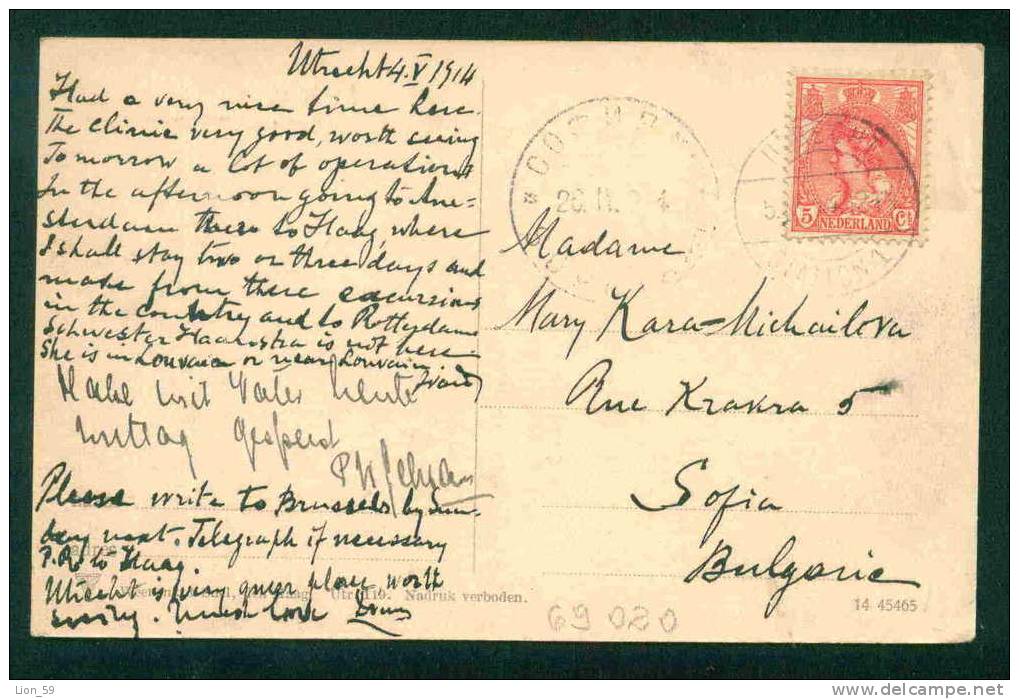 Utrecht 4.V 1914
Had a very nice time here.
The clinic very good, worth seeing
Tomorrow a lot of operations
In the afternoon going to Am-
sterdam then to Haag, where
I shall stay two or three days and
make from there excursions
in the country and to Rotterdam
Schwester Haanstra is not here -
She is in Louvain or near Louvain. Ivan
Habe mit Vater heute
mittag gespeist
Please write to Brussels by Sun-
day next. Telegraph if necessary
P.R. to Haag.
Utrecht is very queer place worth
seeing. Much love
Utr. 119. Nadruk verboden.
Madame
Mary Kara-Michailova
Rue Krakra 5
Sofia
Bulgarie
5 Ct
NEDERLAND
14 45465
69 080
Lion_59
www.delcampe.net